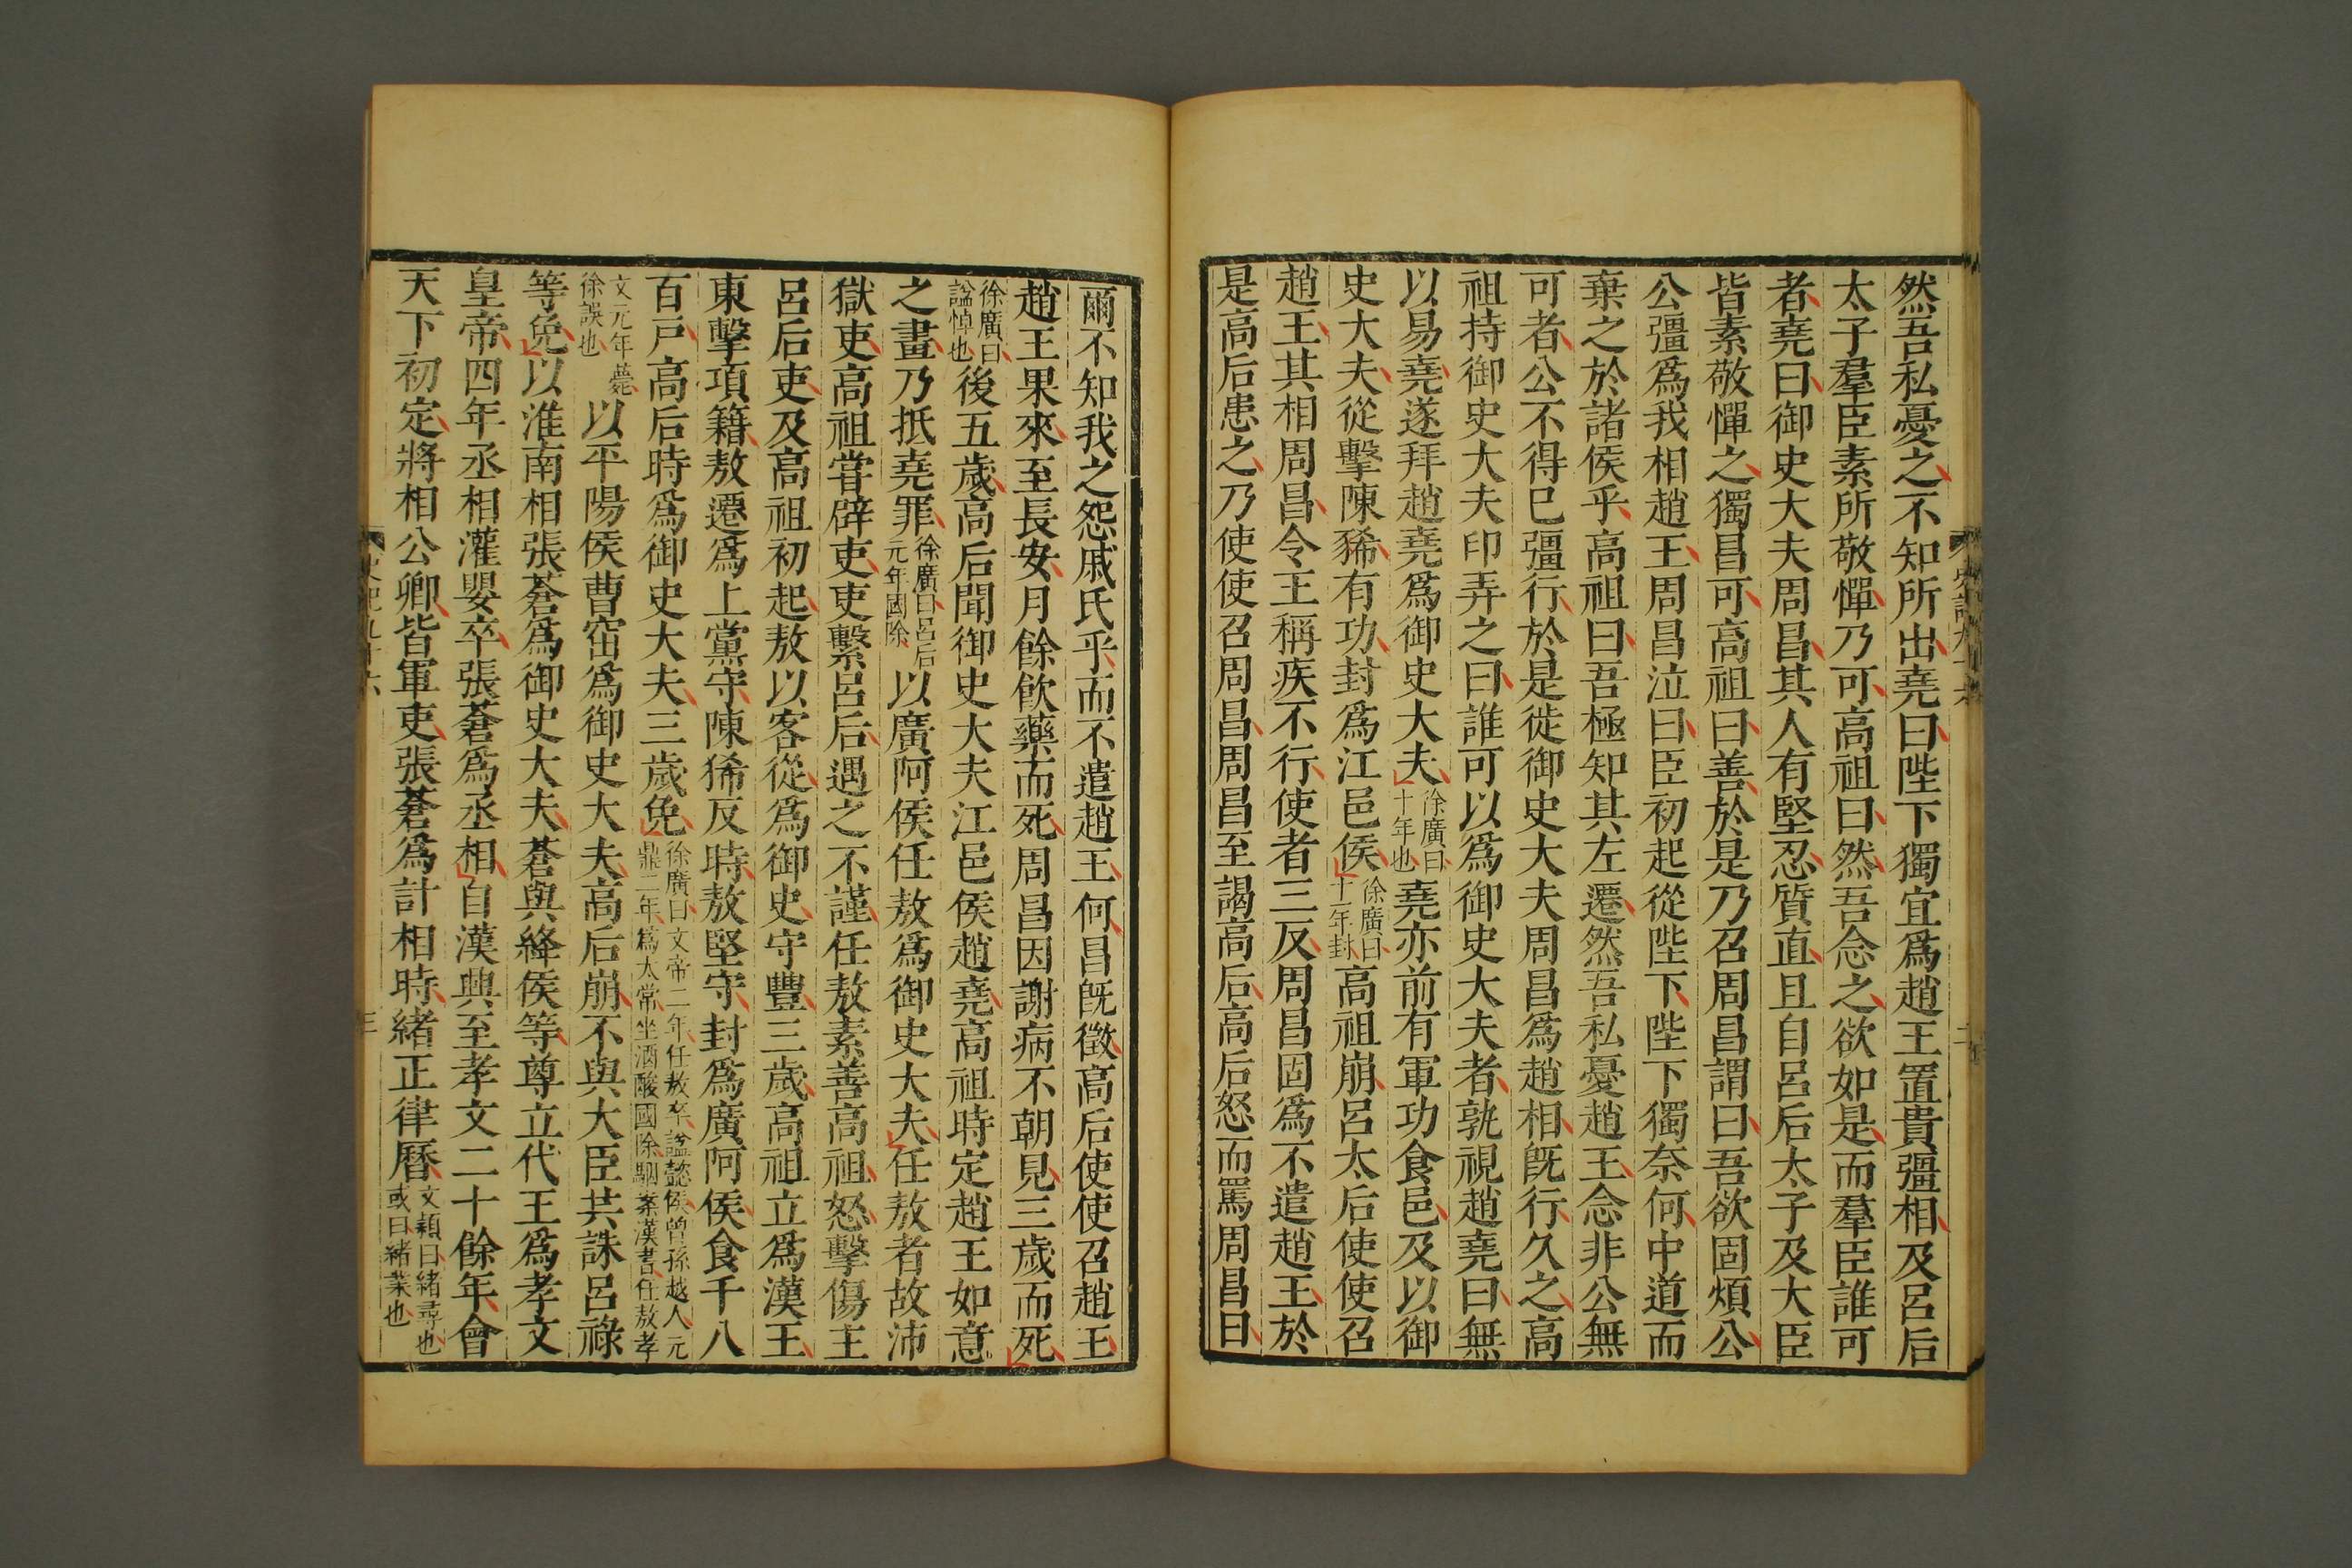 然吾私憂之不知所出堯曰陛下獨宜爲趙王置貴彊相及呂后
太子羣臣素所敬憚乃可高祖曰然吾念之欲如是而羣臣誰可
者堯曰御史大夫周昌其人有堅忍質直且自呂后太子及大臣
皆素敬憚之獨昌可高祖曰善於是乃召周昌謂曰吾欲固煩公
公彊爲我相趙王周昌泣曰臣初起從陛下陛下獨奈何中道而
棄之於諸侯乎高祖曰吾極知其左遷然吾私憂趙王念非公無
可者公不得已彊行於是徙御史大夫周昌爲趙相旣行久之高
祖持御史大夫印弄之曰誰可以爲御史大夫者孰視趙堯曰無
以易堯遂拜趙堯爲御史大夫徐廣曰十年也堯亦前有軍功食邑及以御
史大夫從擊陳豨有功封爲江邑侯徐廣曰十一年封高祖崩呂太后使使召
趙王其相周昌令王稱疾不行使者三反周昌固爲不遣趙王於
是高后患之乃使使召周昌周昌至謁高后高后怒而罵周昌曰
爾不知我之怨戚氏乎而不遣趙王何昌旣徵高后使使召趙王
趙王果來至長安月餘飮藥而死周昌因謝病不朝見三歲而死
徐廣曰諡悼也後五歲高后聞御史大夫江邑侯趙堯高祖時定趙王如意
之畫乃抵堯罪徐廣曰呂后元年國除以廣阿侯任敖爲御史大夫任敖者故沛
獄吏高祖甞辟吏吏繫呂后遇之不謹任敖素善高祖怒擊傷主
呂后吏及高祖初起敖以客從爲御史守豐三歲高祖立爲漢王
東擊項籍敖遷爲上黨守陳豨反時敖堅守封爲廣阿侯食千八
百戶高后時爲御史大夫三歲免徐廣曰文帝二年任敖卒諡懿侯曾孫越人元鼎二年爲太常坐酒酸國除駰案漢書任敖孝
文元年薨徐誤也以平陽侯曹窋爲御史大夫高后崩不與大臣共誅呂祿
等免以淮南相張蒼爲御史大夫蒼與絳侯等尊立代王爲孝文
皇帝四年丞相灌嬰卒張蒼爲丞相自漢興至孝文二十餘年會
天下初定將相公卿皆軍吏張蒼爲計相時緒正律曆文穎曰緒尋也或曰緒業也
史記九十六
三